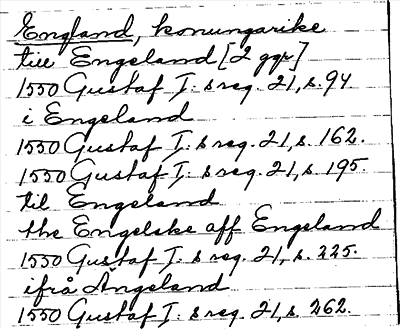 England, konungarike
till Engeland [2 ggr]
1550 Gustaf I: s reg. 21, s. 94.
i Engeland
1550 Gustaf I: s reg. 21, s. 162.
1550 Gustaf I: s reg. 21, s. 195.
til Engeland
the Engelske aff Engeland
1550 Gustaf I: s reg. 21, s. 225.
ifrå Ängeland
1550 Gustaf I: s reg. 21, s. 262.